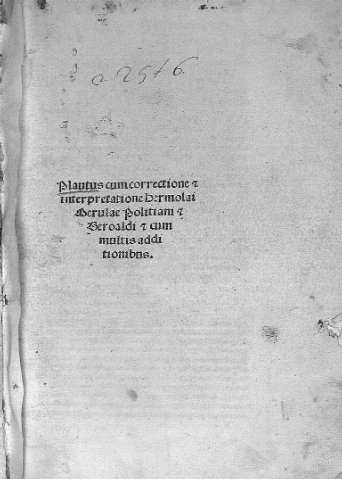 a 2546
Plautus cum correctione ⁊
interpretatione Hermolai
Merulae Politiani ⁊
Beroaldi ⁊ cum
multis addi
tionibus.